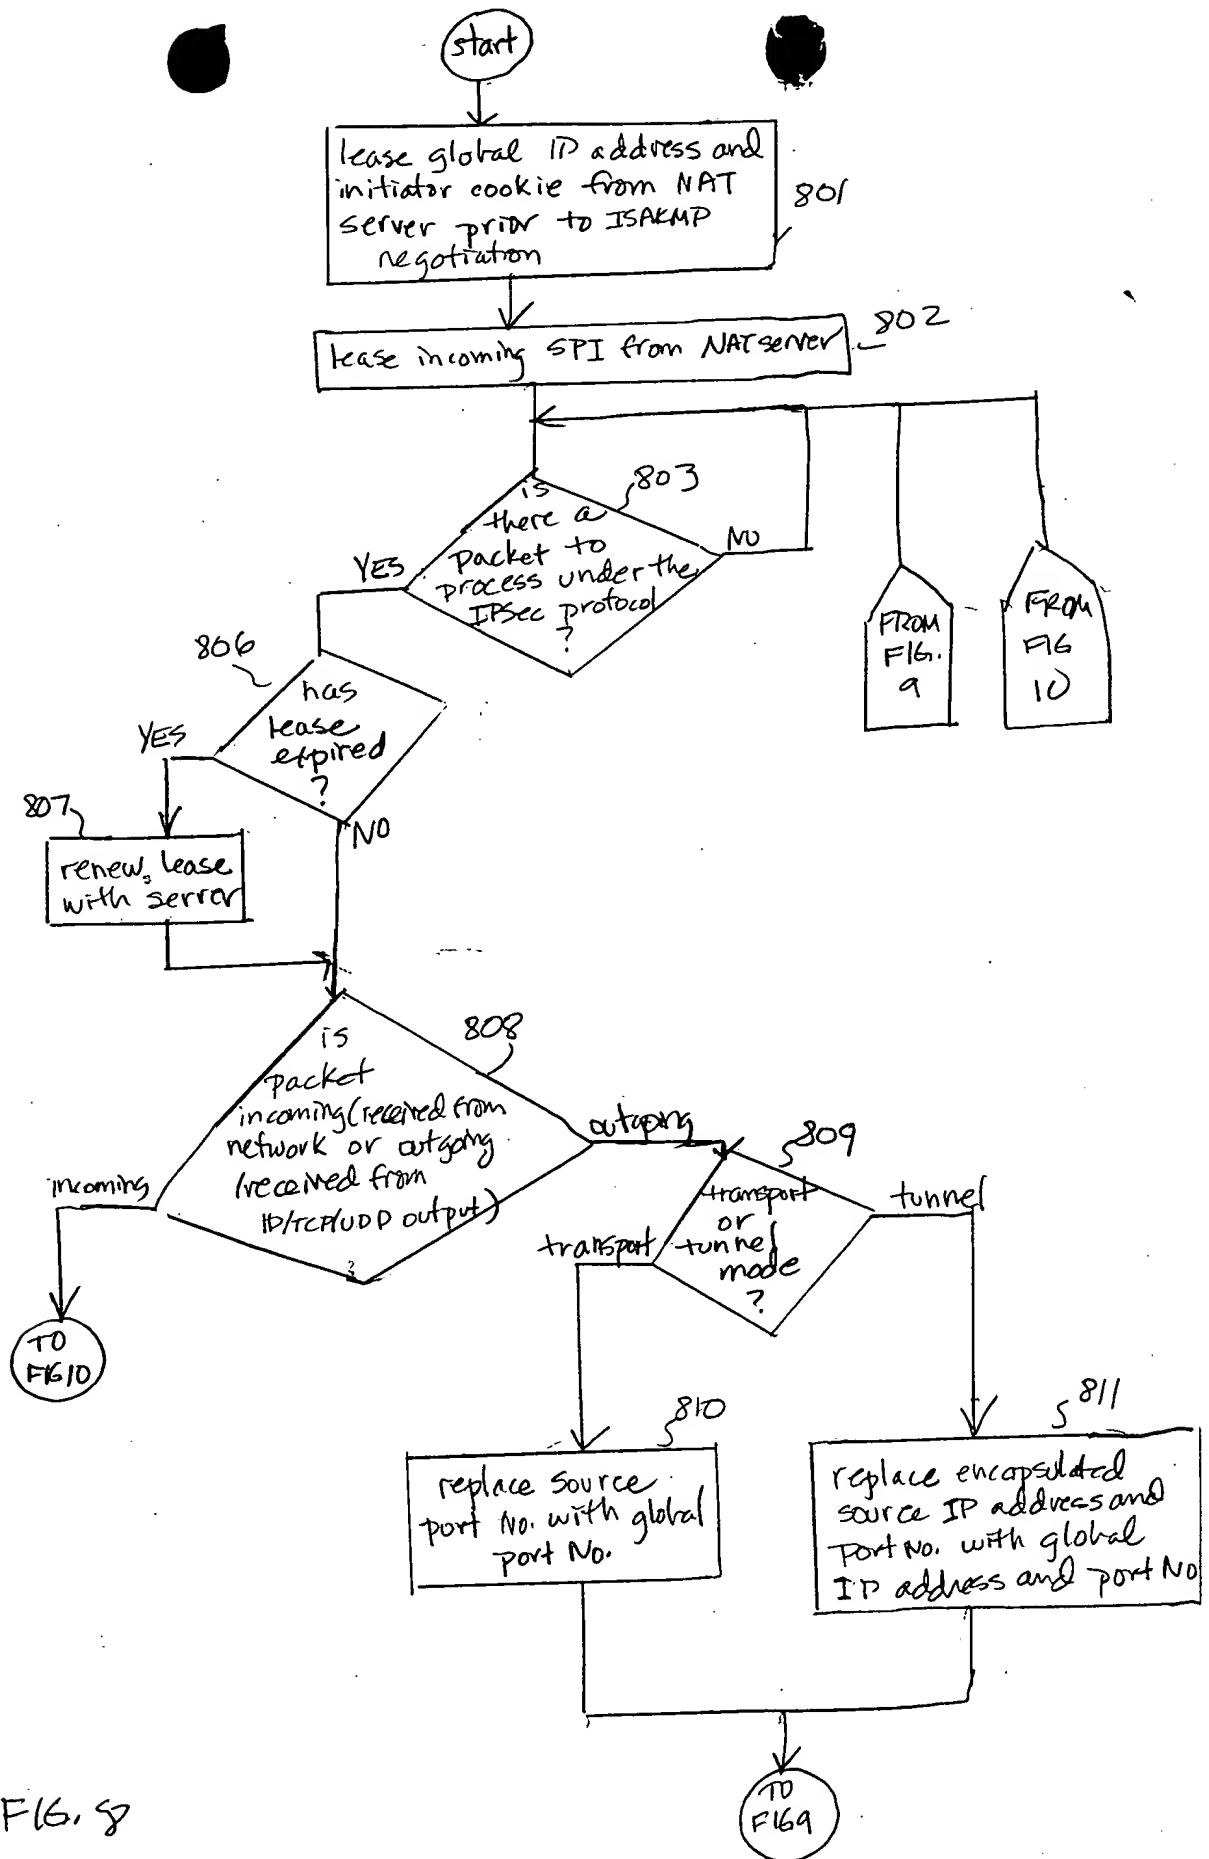 start
lease global IP address and
initiator cookie from NAT
server prior to ISAKMP
negotiation
801
lease incoming SPI from NAT server
802
803
is
there a
packet to
process under the
IPSec protocol
?
YES
NO
FROM
FIG.
9
FROM
FIG
10
806
has
lease
expired
?
YES
NO
807
renew lease
with server
808
is
packet
incoming (received from
network or outgoing
(received from
IP/TCP/UDP output)
?
incoming
outgoing
TO
FIG 10
809
transport
or
tunnel
mode
?
transport
tunnel
810
replace source
port No. with global
port No.
811
replace encapsulated
source IP address and
port No. with global
IP address and port No
TO
FIG 9
FIG. 8